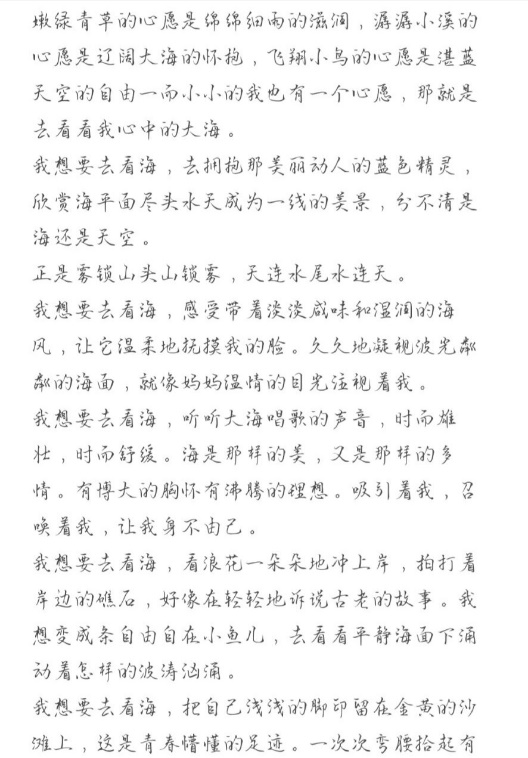 嫩绿青草的心愿是绵绵细雨的滋润，潺潺小溪的
心愿是辽阔大海的怀抱，飞翔小鸟的心愿是湛蓝
天空的自由一而小小的我也有一个心愿，那就是
去看看我心中的大海。
我想要去看海，去拥抱那美丽动人的蓝色精灵，
欣赏海平面尽头水天成为一线的美景，分不清是
海还是天空。
正是雾锁山头山锁雾，天连水尾水连天。
我想要去看海，感受带着淡淡咸味和湿润的海
风，让它温柔地抚摸我的脸。久久地凝视波光粼
粼的海面，就像妈妈温情的目光注视着我。
我想要去看海，听听大海唱歌的声音，时而雄
壮，时而舒缓。海是那样的美，又是那样的多
情。有博大的胸怀有沸腾的理想。吸引着我，召
唤着我，让我身不由己。
我想要去看海，看浪花一朵朵地冲上岸，拍打着
岸边的礁石，好像在轻轻地诉说古老的故事。我
想变成条自由自在小鱼儿，去看看平静海面下涌
动着怎样的波涛汹涌。
我想要去看海，把自己浅浅的脚印留在金黄的沙
滩上，这是青春懵懂的足迹。一次次弯腰拾起有